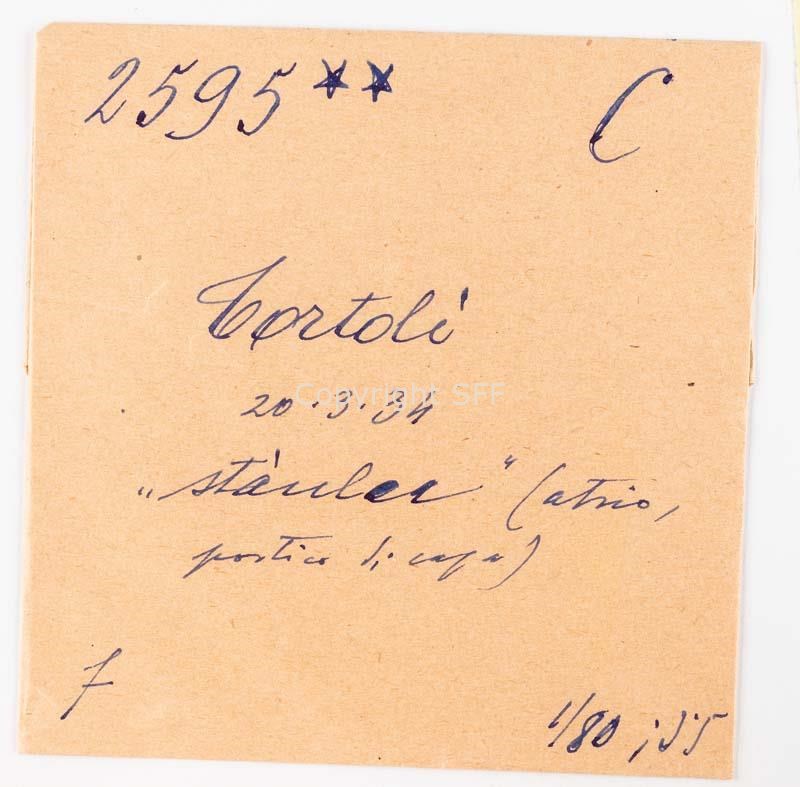 2595** C
Tortolì
Copyright SFF
20.3.34
„stàulea" (atrio,
portico di casa)
f
1/80 ; 5'5